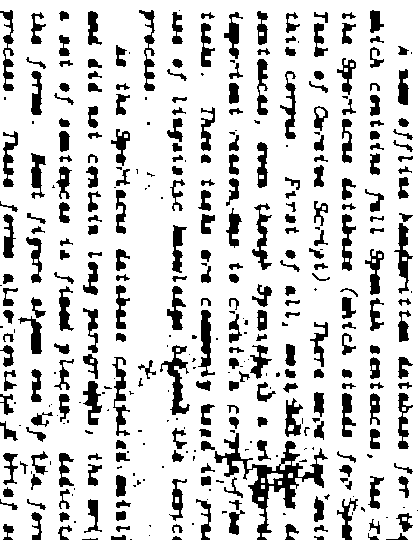 A new offline handwritten database for the
which contains full Spanish sentences, has
the Spartacus database (which stands for
Task of Cursive Script). There were two main
this corpus. First of all, most databases do
sentences, even though Spanish is a
important reason was to create a corpus from
tasks. These tasks are commonly used in
use of linguistic knowledge beyond the
process.
As the Spartacus database consisted mainly
and did not contain long paragraphs, the
a set of sentences in fixed places:
the forms. Next figure shows one of the
process. These forms also contain a brief